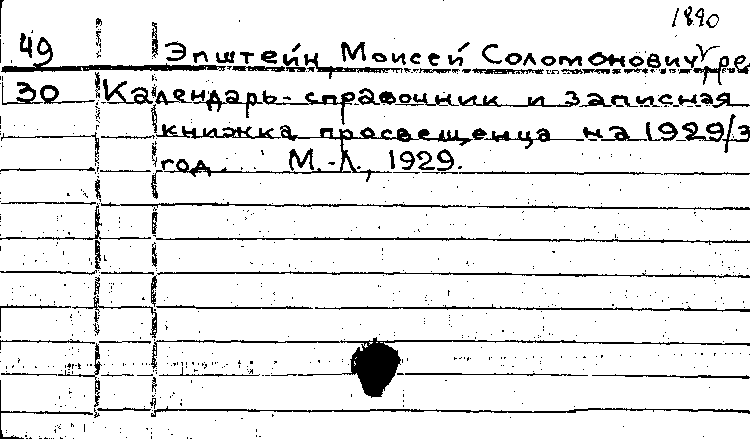 1890
49 Эпштейн, Моисей Соломонович, ре
30 Календарь-справочник и записная
книжка просвещенца на 1929/3
год. М.-Л., 1929.